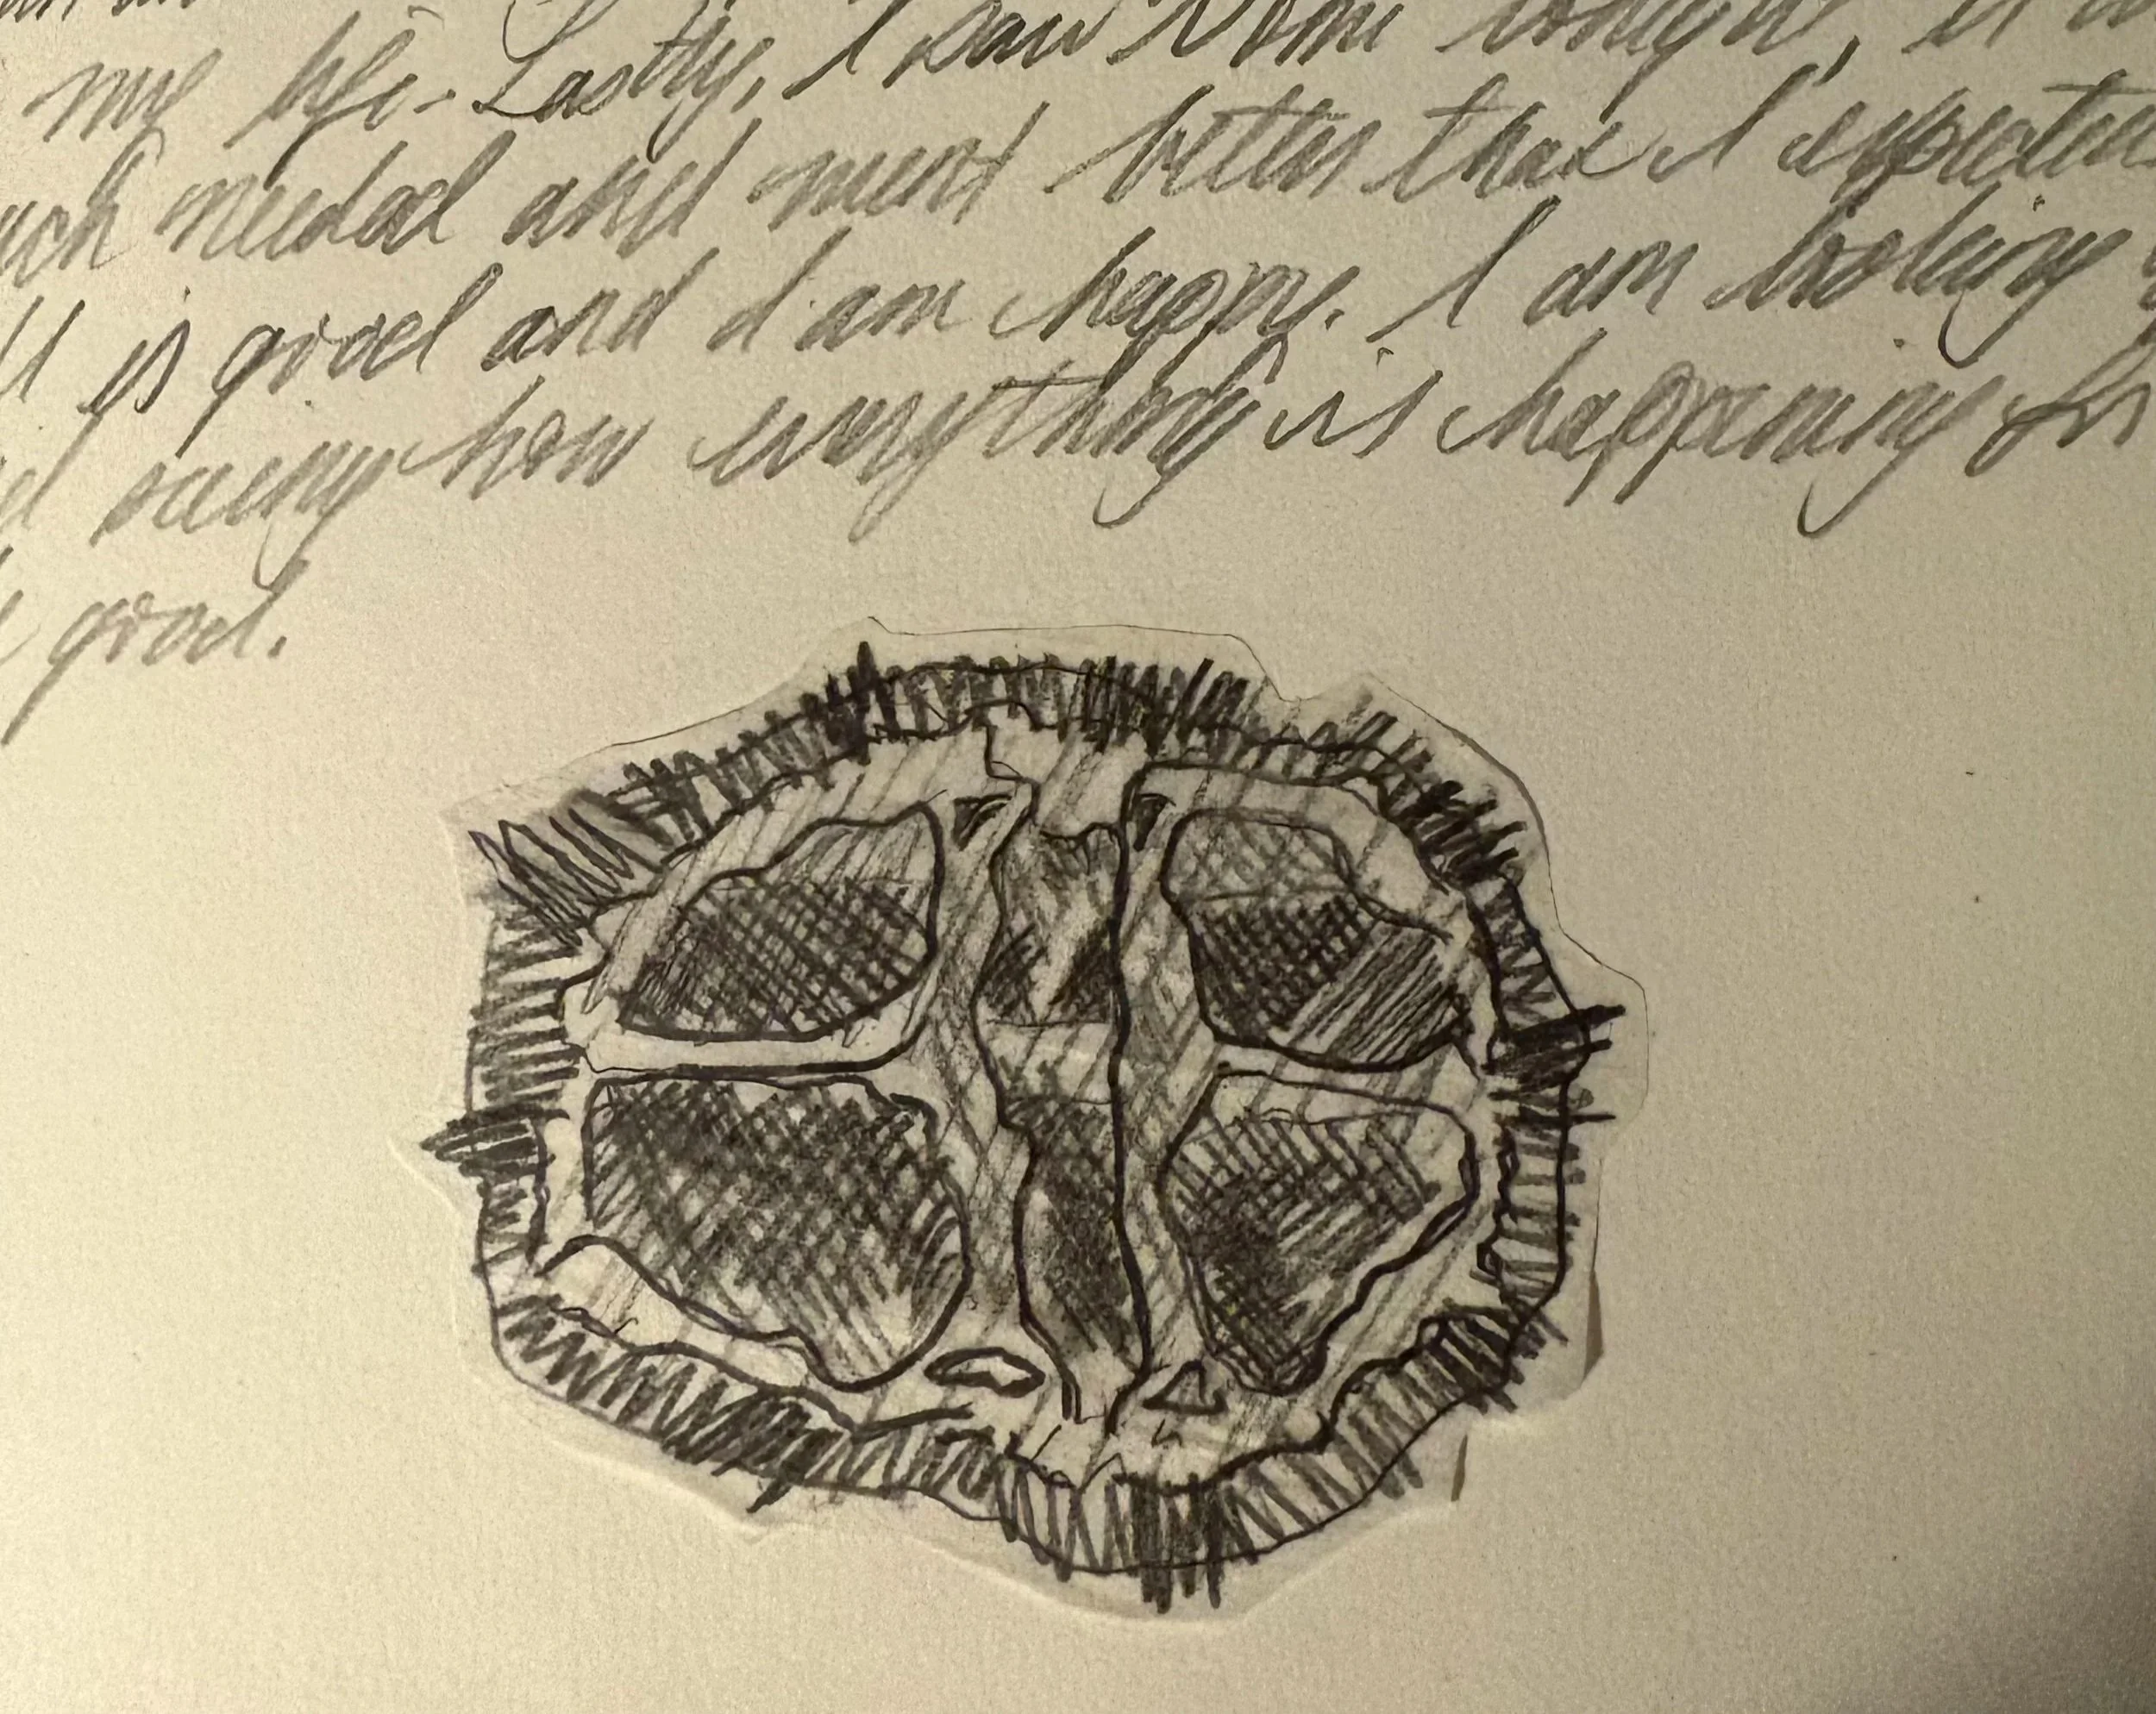 my life. Lastly, I saw tonight, it
needed and went better than I expected
is good and I am happy. I am looking
seeing how everything is happening for
good.